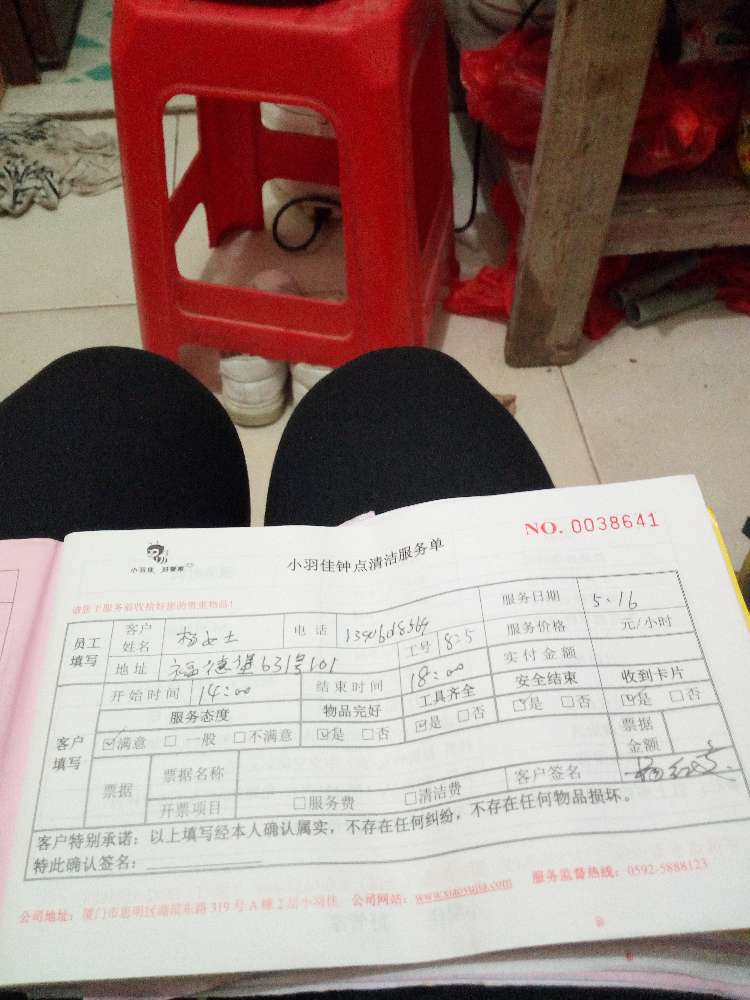 NO. 0038641
小羽佳 好管家
小羽佳钟点清洁服务单
请您于服务前收拾好您的贵重物品!
员工填写 客户姓名 杨女士 电话 服务日期 5.16
地址 福德堡631号101 工号 825 服务价格 元/小时
客户填写 开始时间 14:00 结束时间 18:00 实付金额
服务态度 物品完好 工具齐全 安全结束 收到卡片
☑满意 □一般 □不满意 ☑是 □否 ☑是 □否 ☑是 □否 ☑是 □否
票据 票据名称 票据金额
开票项目 □服务费 □清洁费 客户签名
客户特别承诺:以上填写经本人确认属实,不存在任何纠纷,不存在任何物品损坏。
特此确认签名:
公司地址:厦门市思明区湖滨东路319号A幢2层小羽佳 公司网站:www.xiaoyujia.com 服务监督热线:0592-5888123